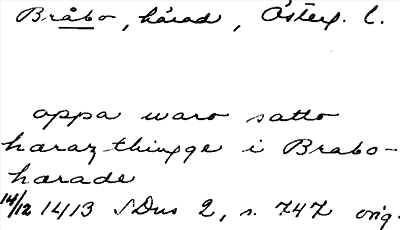 Bråbo, härad, Österg. l.
oppa waro satto
haraz thingge i Brabo-
harade
14/12 1413 SDns 2, s. 747 orig.